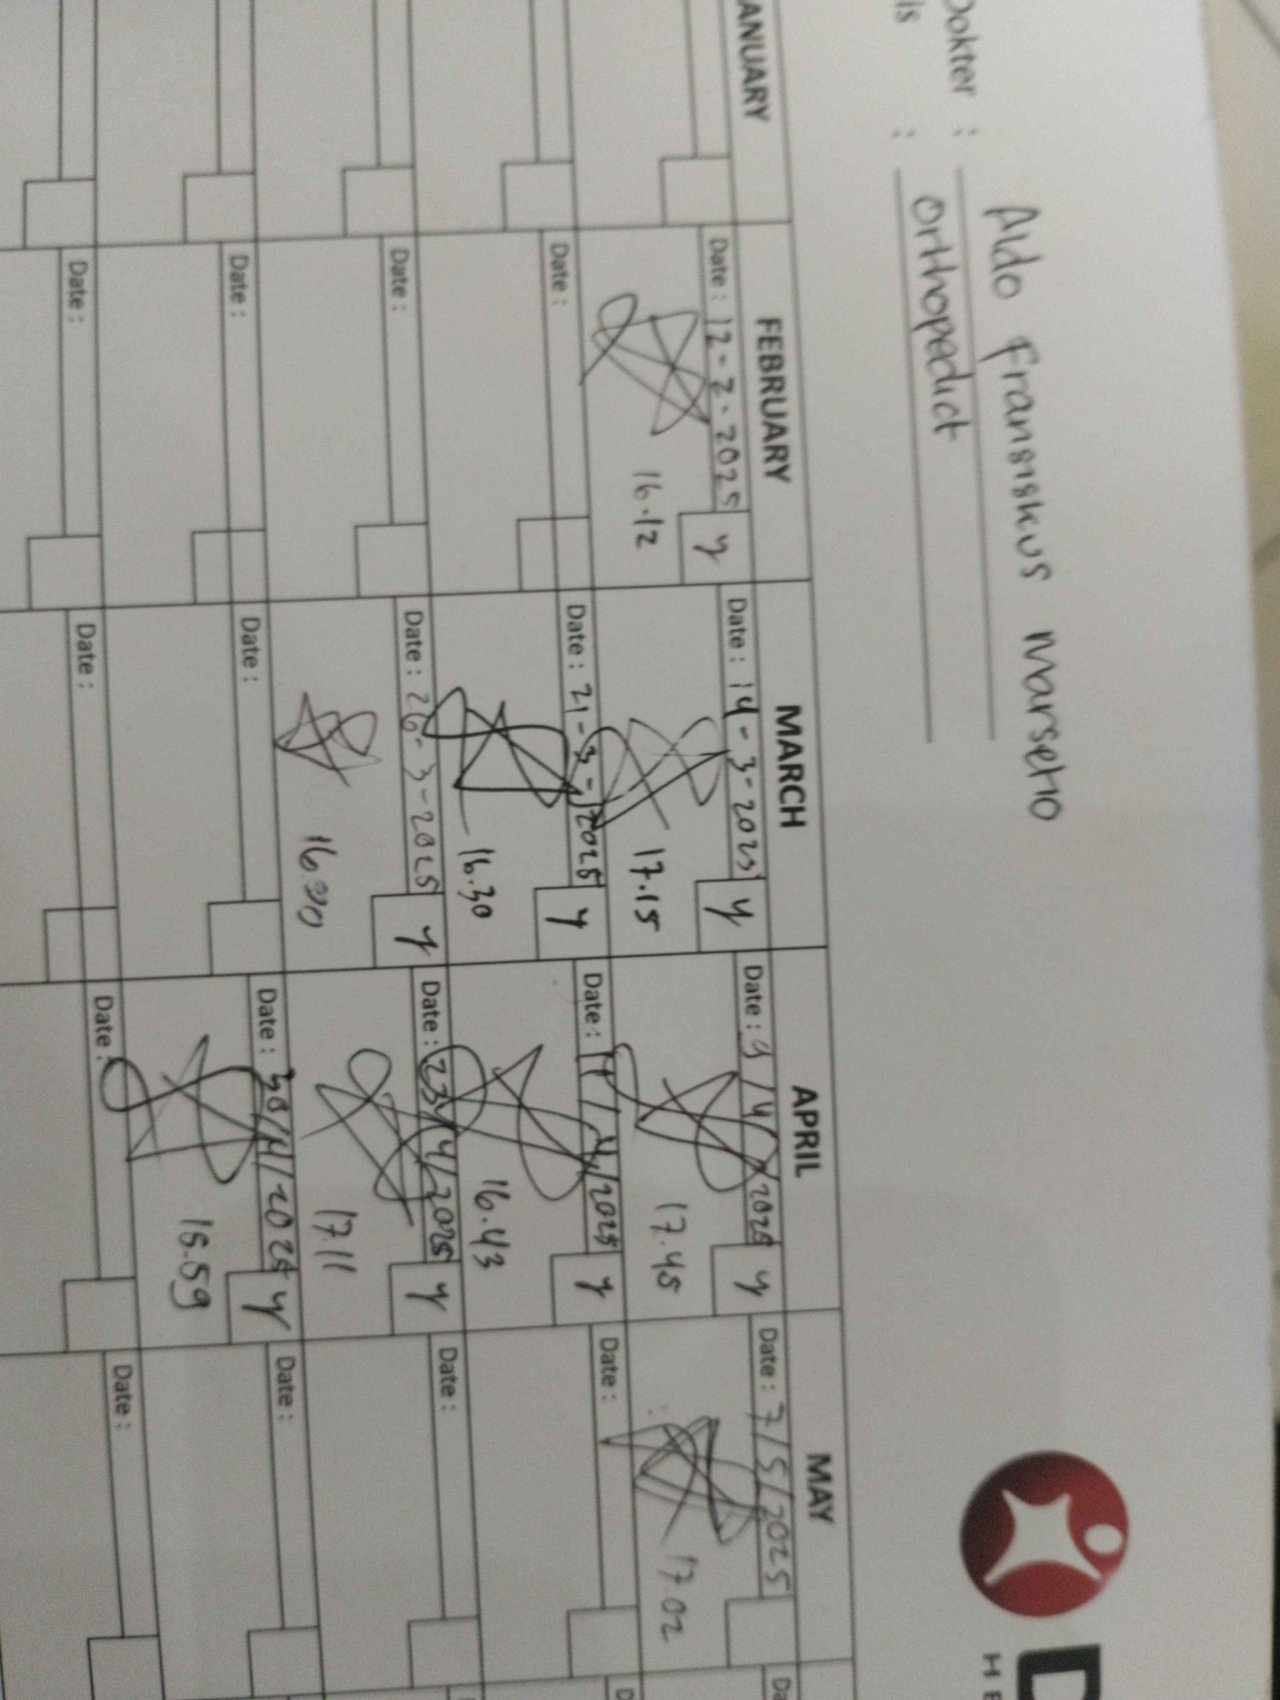 Dokter : Aldo Fransiskus Marseno
is : Orthopedict
ANUARY FEBRUARY MARCH APRIL MAY
Date : 12-2-2025 y
16.12
Date : 14-3-2025 y
17.15
Date : 9/4/2025 y
17.45
Date : 7/5/2025
17.02
Da
Date :
Date : 21-3-2025 y
16.30
Date : 17/4/2025 y
16.43
Date :
D
Date :
Date : 26-3-2025 y
Date : 23/4/2025 y
17.11
Date :
Date :
Date :
Date : 30/4/2025 y
15.59
Date :
Date :
Date :
Date :
Date :
D
HE